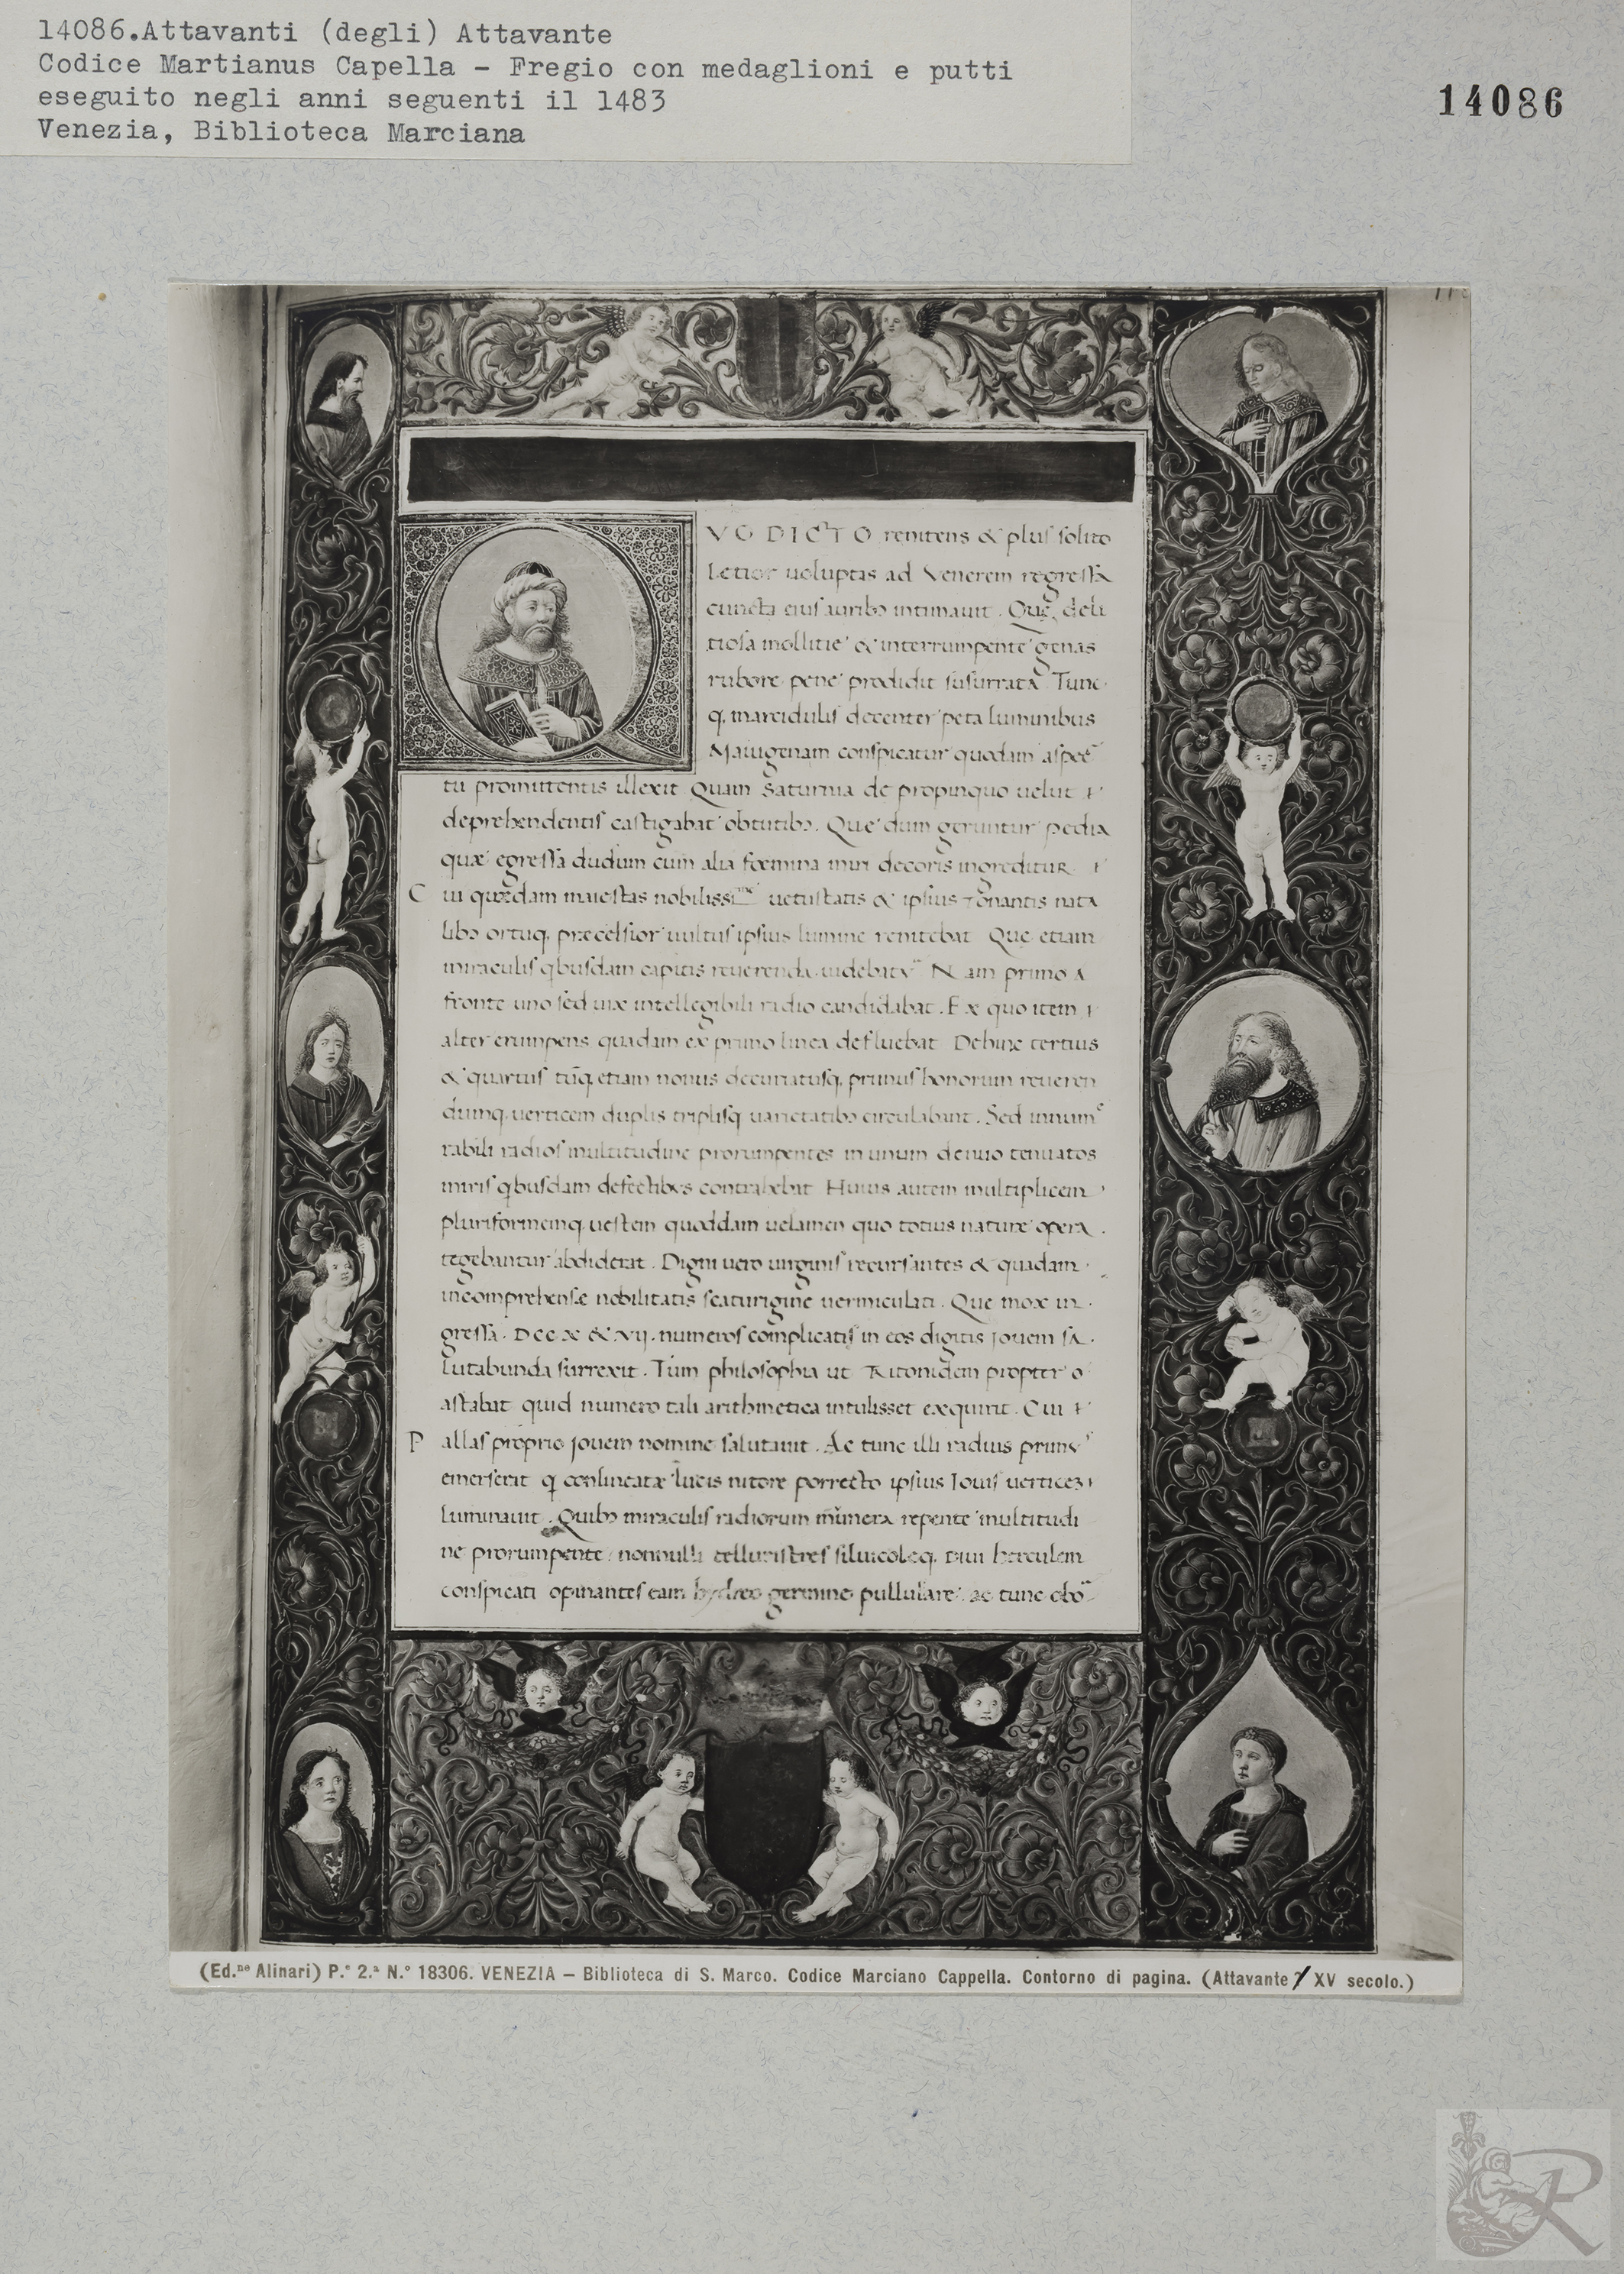 14086.Attavanti (degli) Attavante
Codice Martianus Capella - Fregio con medaglioni e putti
eseguito negli anni seguenti il 1483
Venezia, Biblioteca Marciana
14086
VO DICTO renitens & pluſ ſolito
Letior uoluptas ad Venerem regreſſa
cuncta eiuſ auribꝫ intimauit. Quę deli
tioſa mollitie & interrumpente genas
rubore pene prodidit ſuſurrata Tunc
q, marcidulis decenter peta luminibus
Maiugenam conſpicatur quodam aſpec
tu promittentis illexit Quam Saturnia de propinquo uelut
deprehendentiſ caſtigabat obtutibꝫ. Que dum geruntur pedia
quæ egreſſa dudum cum alia fœmina miri decoris ingreditur
C ui quędam maieſtas nobiliſſi uetuſtatis & ipſius Tonantis nata
libꝫ ortuq, præcelſior uultus ipſius lumine renitebat Que etiam
miraculiſ qbuſdam capitis reuerenda uidebat N am primo a
fronte uno ſed uix intellegibili radio candidabat. E x quo item
alter erumpens quadam ex primo linea defluebat Dehinc tertius
& quartuſ tūq, etiam nonus decuriatuſq, primuſ honorum reueren
dumq, uerticem duplis triplisq uarietatibꝫ circulabant. Sed innum
rabili radioſ multitudine prorumpentes in unum denuo tenuatos
miriſ qbuſdam defectibus contrahebat Huius autem multiplicem
pluriformemq, ueſtem quoddam uelamen quo totius nature opera
tegebantur abdiderat. Digiti uero uirginiſ recurſantes & quadam
incomprehenſæ nobilitatis ſcaturigine uermiculati. Que mox in
greſſa. DCC X & VII. numeroſ complicatiſ in eos digitis Iouem ſa
lutabunda ſurrexit. Tum philoſophia ut Tritonidem propter
aſtabat quid numero tali arithmetica intulisset exquirit. Cui
P allaſ proprio Iouem nomine ſalutauit. Ac tunc illi radius
emerſerat q conlineatæ lucis nitore porrecto ipſius Iouiſ uerticeꝫ
Luminauit. Quibꝫ miraculiſ radiorum repente multitudi
ne prorumpente nonnulli telluriſtreſ ſiluicoleq, Diui herculem
conſpicati opinanteſ eam hydreo germine pullulare: ac tunc
(Ed.ne Alinari) P.e 2.a N.° 18306. VENEZIA – Biblioteca di S. Marco. Codice Marciano Cappella. Contorno di pagina. (Attavante / XV secolo.)
R